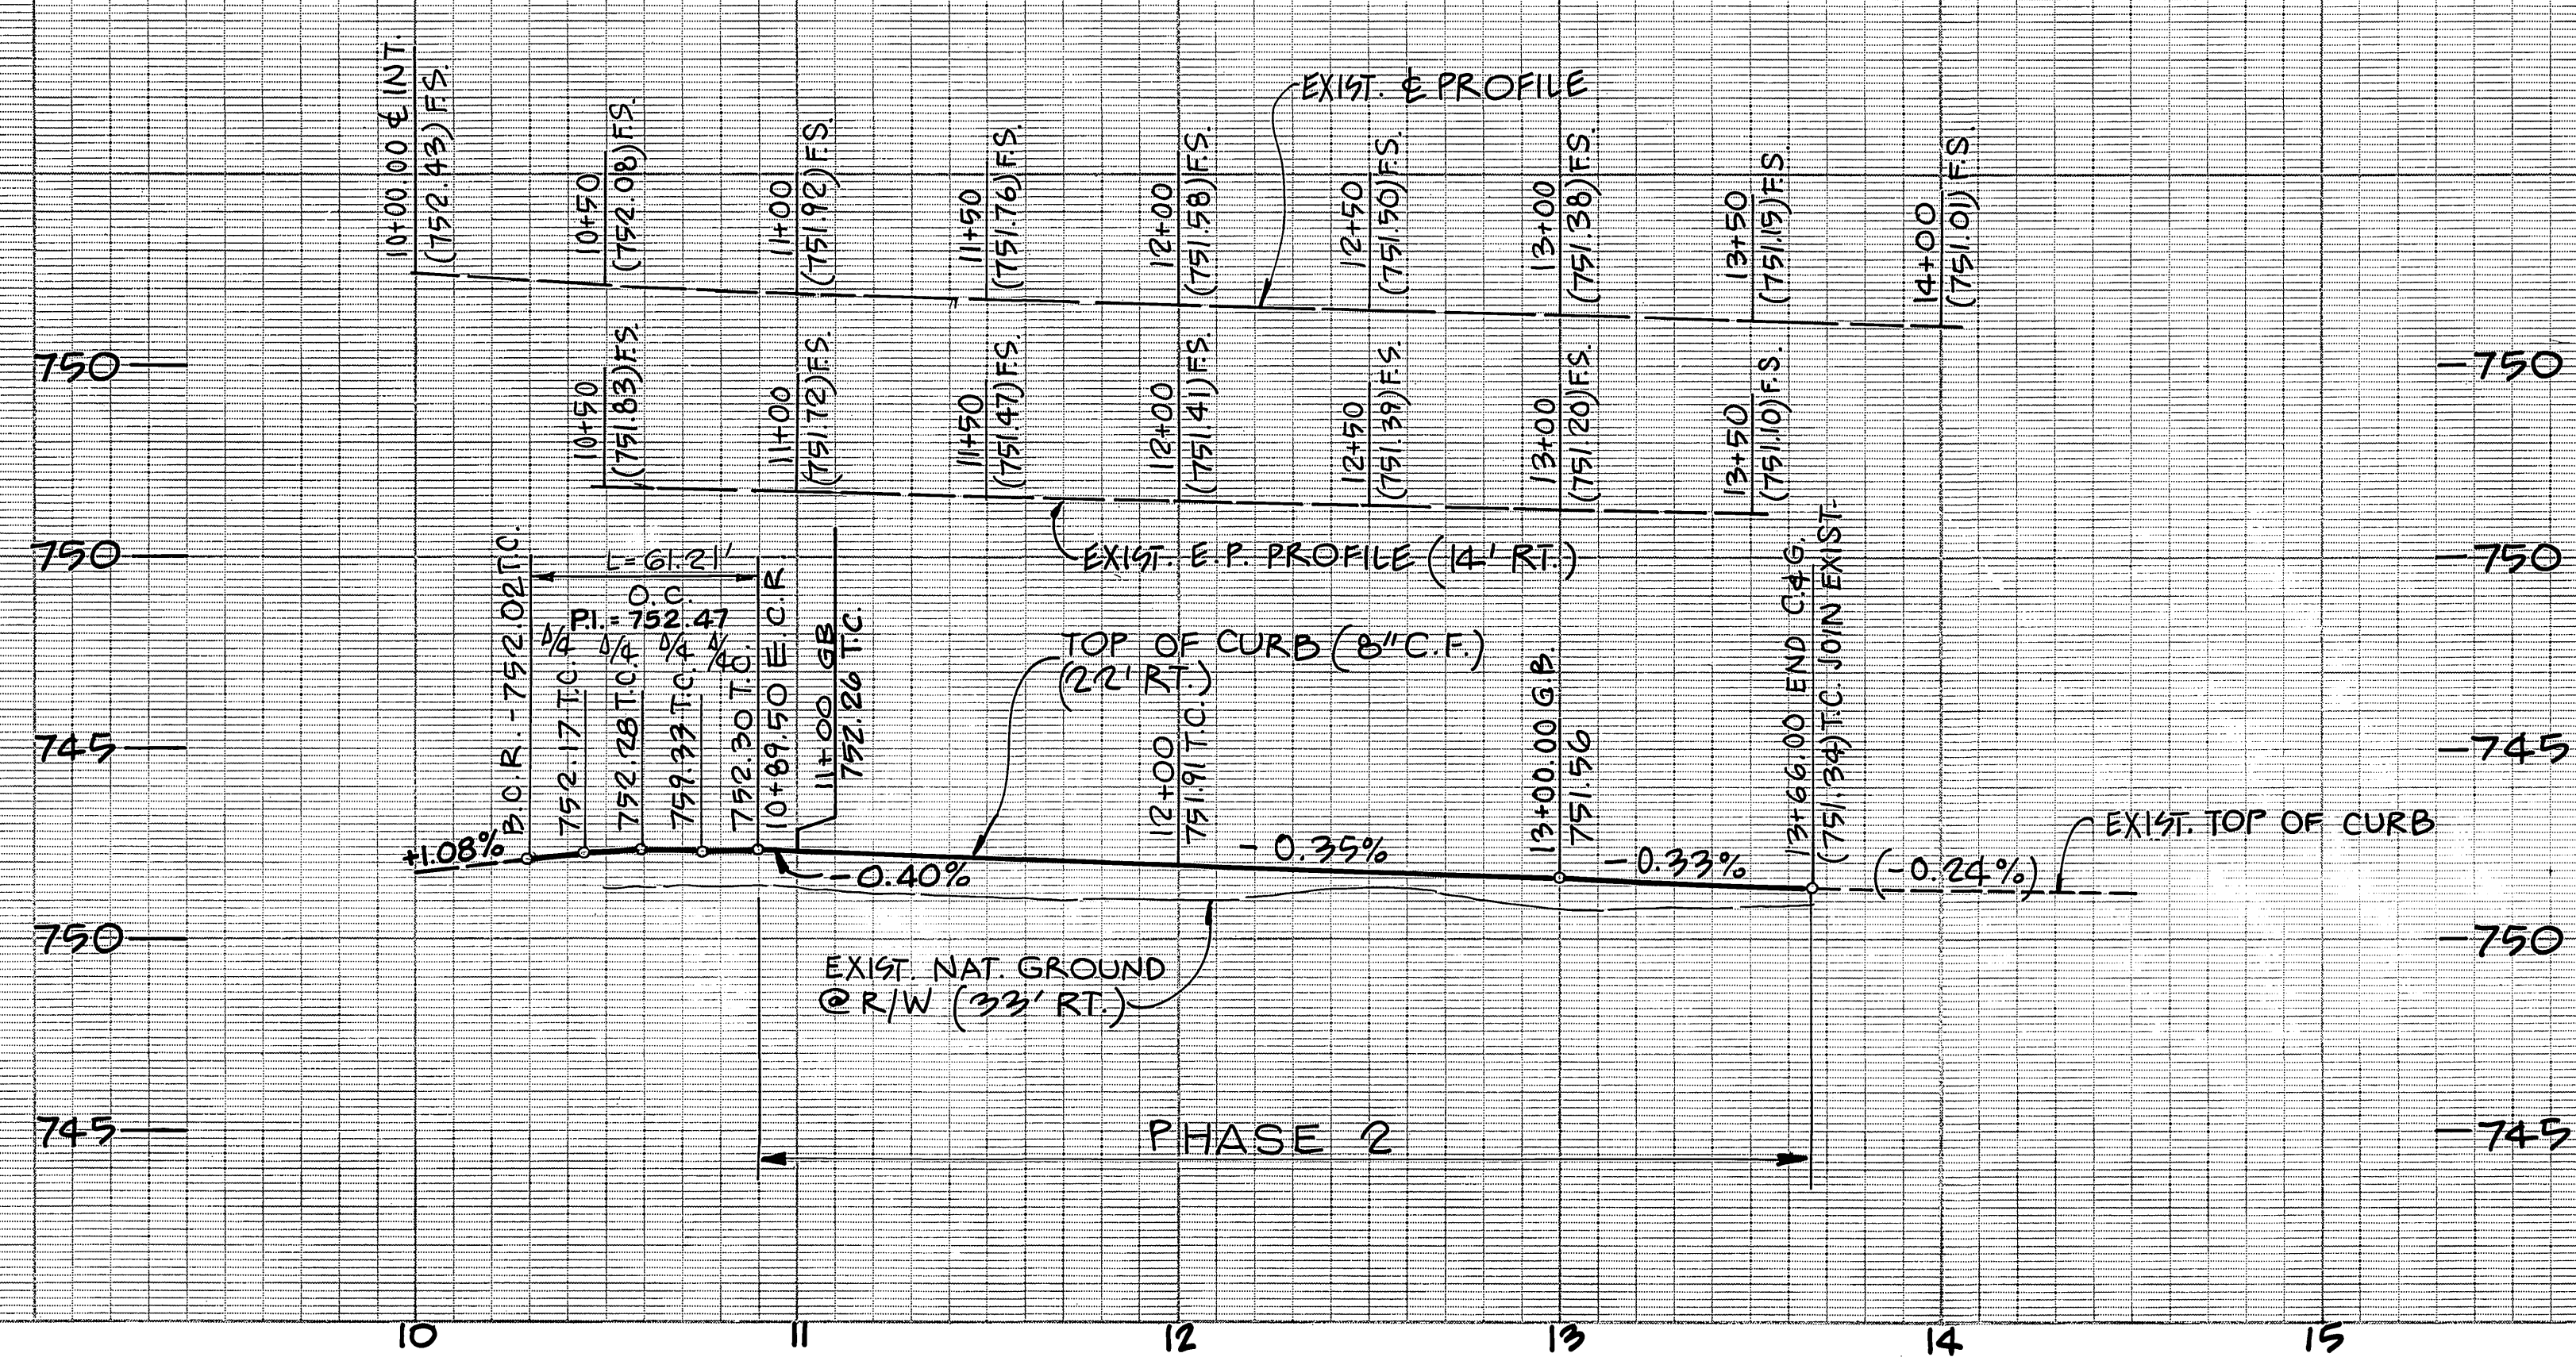 10+00.00 ℄ INT.
(752.43) F.S.
10+50
(752.08) F.S.
11+00
(751.92) F.S.
11+50
(751.76) F.S.
12+00
(751.58) F.S.
12+50
(751.50) F.S.
13+00
(751.38) F.S.
13+50
(751.15) F.S.
14+00
(751.01) F.S.
EXIST. ℄ PROFILE
750
750
10+50
(751.83) F.S.
11+00
(751.72) F.S.
11+50
(751.47) F.S.
12+00
(751.41) F.S.
12+50
(751.39) F.S.
13+00
(751.20) F.S.
13+50
(751.10) F.S.
EXIST. E.P. PROFILE (14' RT.)
750
750
B.C.R. - 752.02 T.C.
L=61.21'
O.C.
P.I.= 752.47
Δ/4 Δ/4 Δ/4 Δ/4
752.17 T.C.
752.28 T.C.
759.33 T.C.
752.30 T.C.
10+89.50 E.C.R.
11+00 GB
752.26 T.C.
TOP OF CURB (8" C.F.)
(22' RT.)
12+00
751.91 T.C.
13+00.00 G.B.
751.56
13+66.00 END C.&G.
(751.34) T.C. JOIN EXIST.
745
745
+1.08%
-0.40%
- 0.35%
- 0.33%
(-0.24%)
EXIST. TOP OF CURB
750
750
EXIST. NAT. GROUND
@ R/W (33' RT.)
745
745
PHASE 2
10 11 12 13 14 15